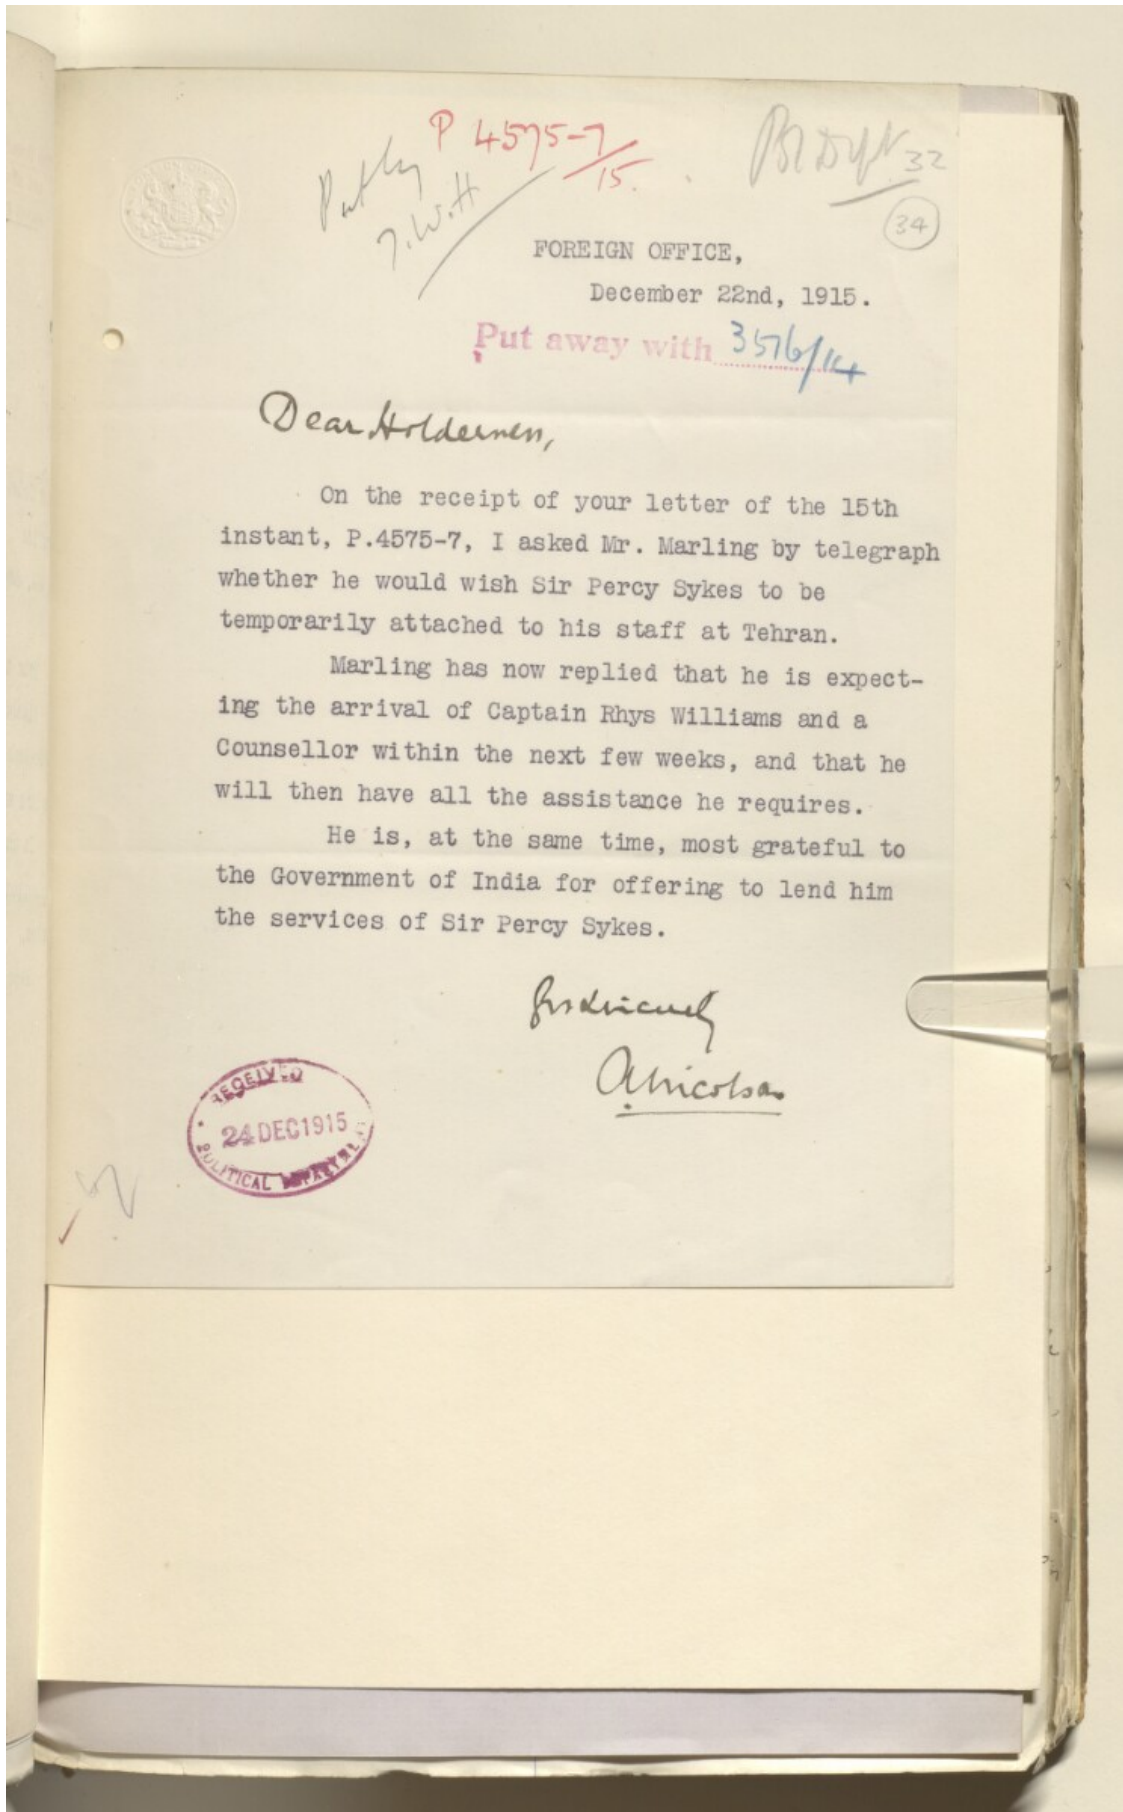 P 4575-7/15.
Pol Dept. 32
Put by
34
FOREIGN OFFICE,
December 22nd, 1915.
Put away with 3516/14
Dear Holderness,
On the receipt of your letter of the 15th
instant, P.4575-7, I asked Mr. Marling by telegraph
whether he would wish Sir Percy Sykes to be
temporarily attached to his staff at Tehran.
Marling has now replied that he is expect-
ing the arrival of Captain Rhys Williams and a
Counsellor within the next few weeks, and that he
will then have all the assistance he requires.
He is, at the same time, most grateful to
the Government of India for offering to lend him
the services of Sir Percy Sykes.
Yrs sincerely
A Nicolson
RECEIVED
24 DEC 1915
POLITICAL DEPARTMENT